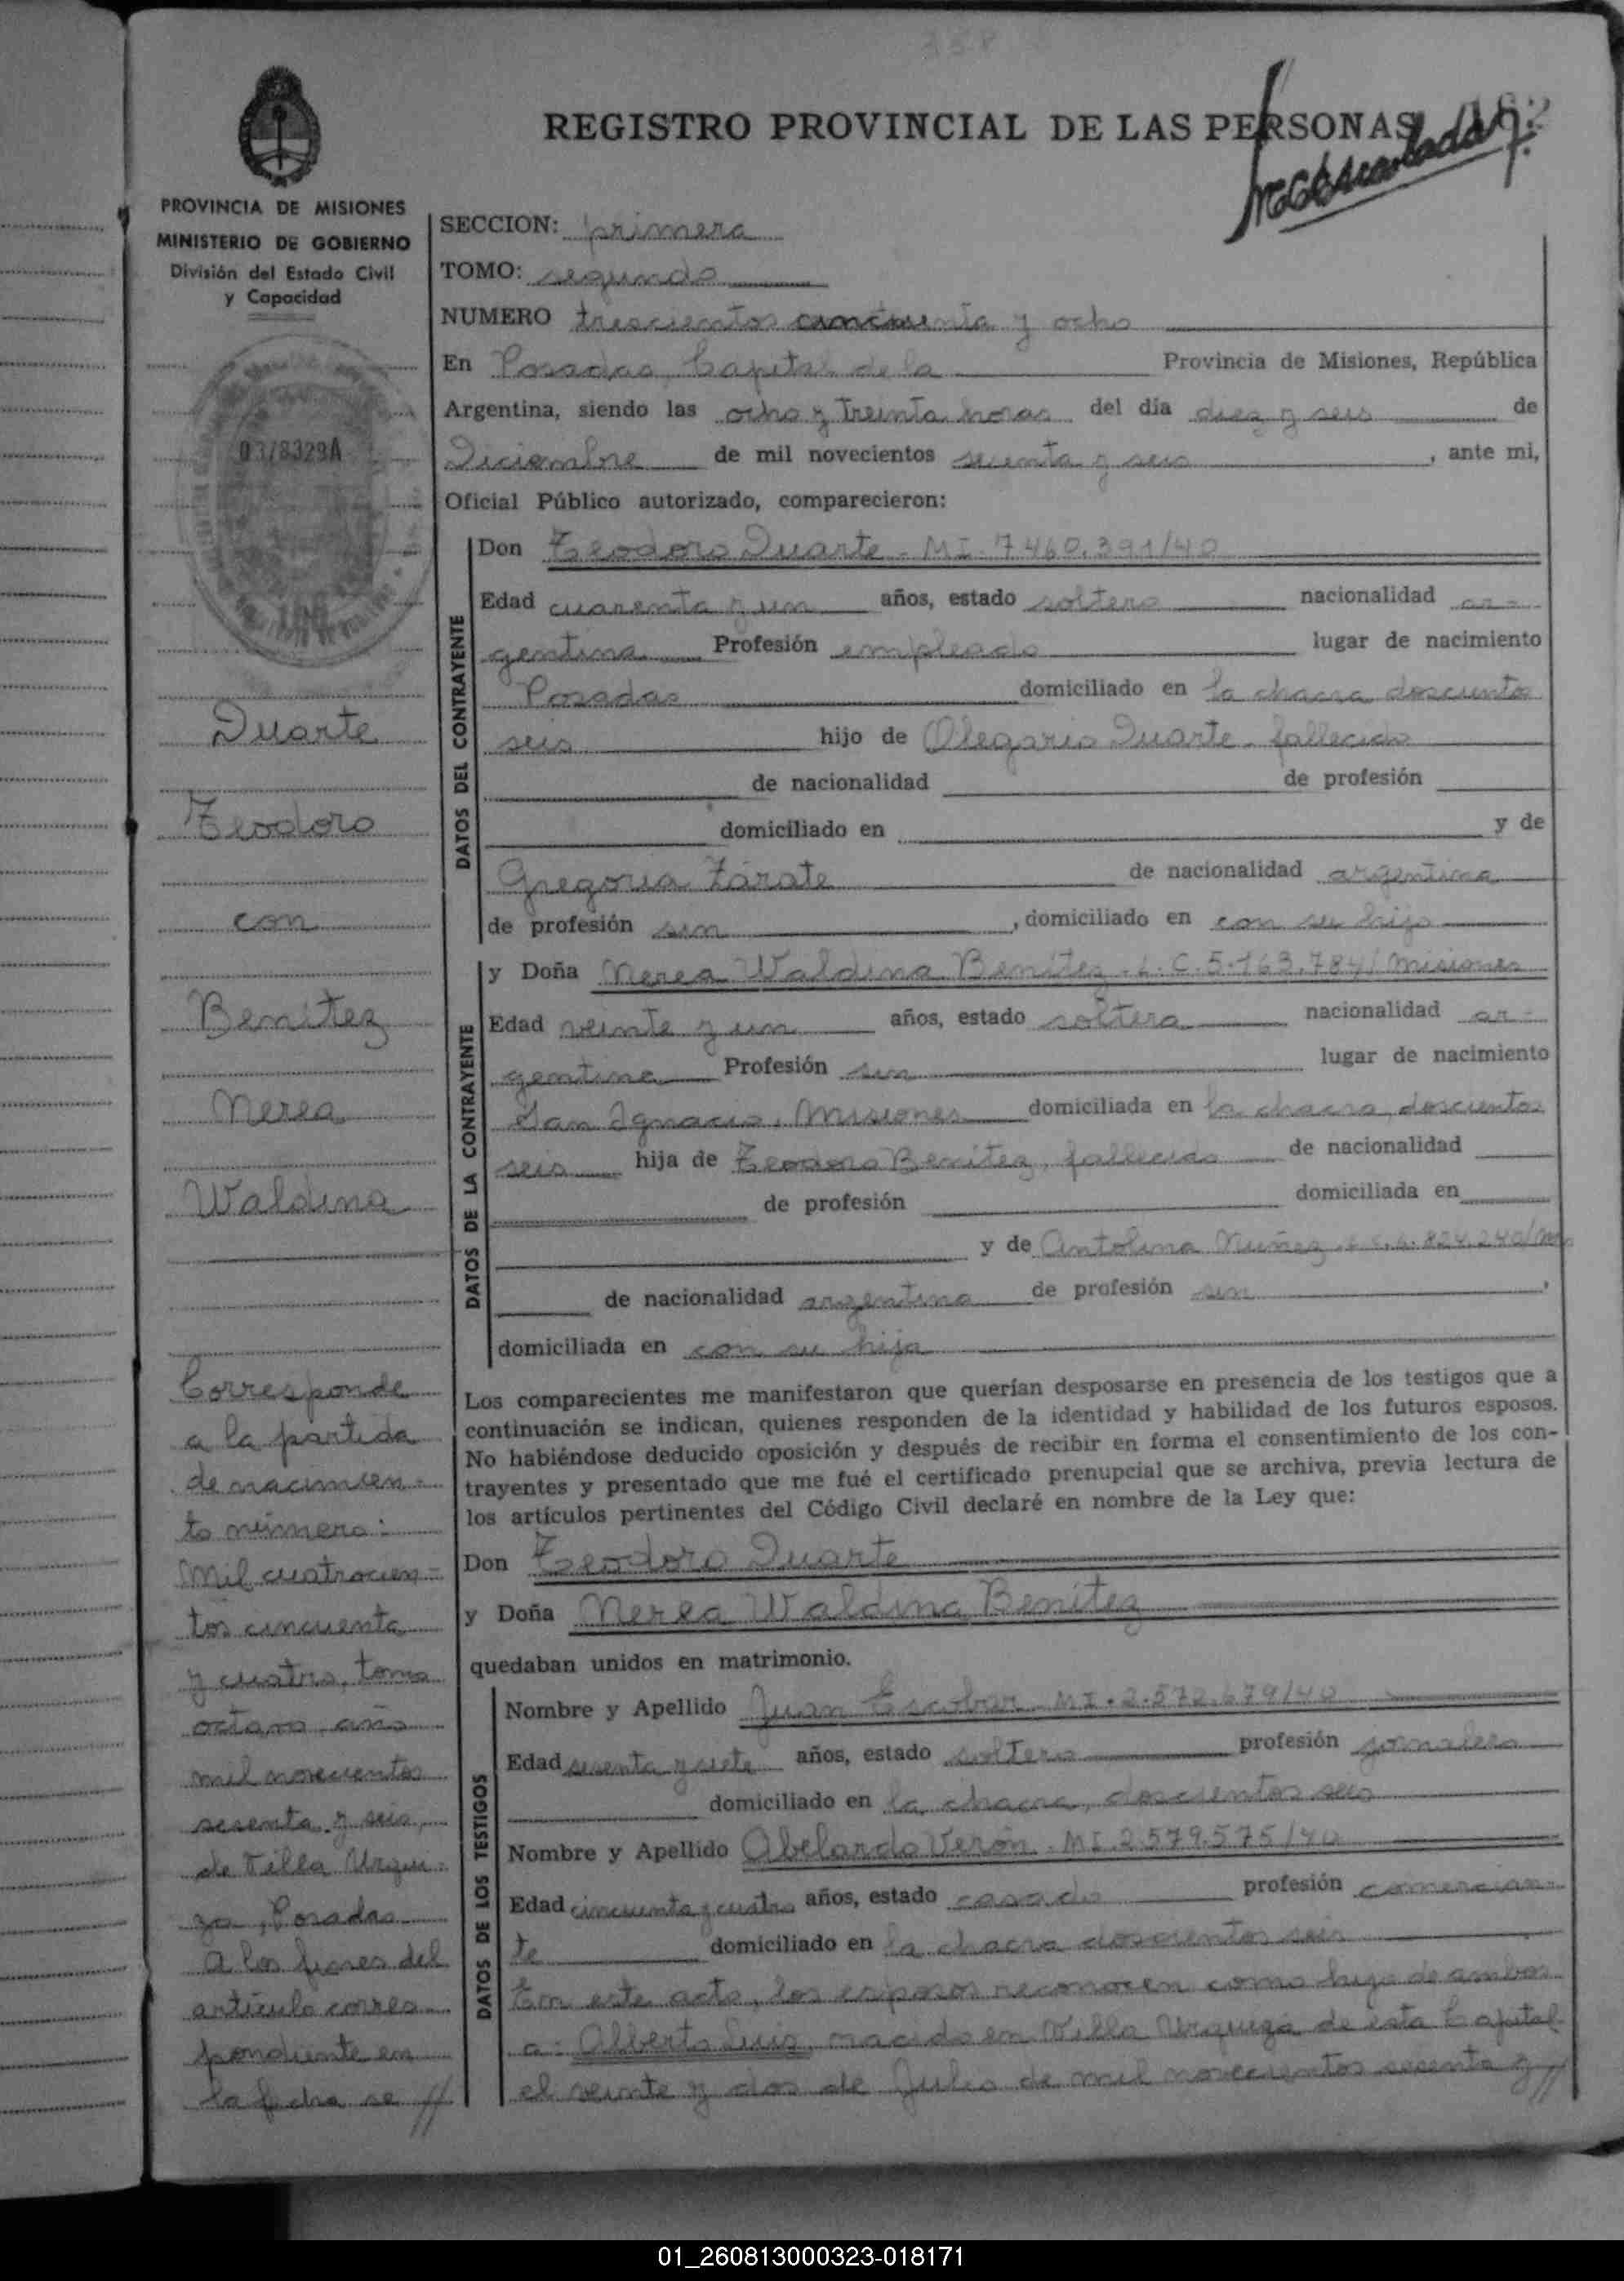 358
REGISTRO PROVINCIAL DE LAS PERSONAS
PROVINCIA DE MISIONES
MINISTERIO DE GOBIERNO
División del Estado Civil
y Capacidad
03/8329A
SECCION: primera
TOMO: segundo
NUMERO trescientos cincuenta y ocho
En Posadas, Capital de la Provincia de Misiones, República
Argentina, siendo las ocho y treinta horas del día diez y seis de
Diciembre de mil novecientos sesenta y seis, ante mi,
Oficial Público autorizado, comparecieron:
DATOS DEL CONTRAYENTE
Don Teodoro Duarte - MI. 7.460.391/40
Edad cuarenta y un años, estado soltero nacionalidad ar-
gentina Profesión empleado lugar de nacimiento
Posadas domiciliado en la chacra doscientos
seis hijo de Olegario Duarte - fallecido
de nacionalidad de profesión
domiciliado en y de
Gregoria Zárate de nacionalidad argentina
de profesión sin, domiciliado en con su hijo
DATOS DE LA CONTRAYENTE
y Doña Nerea Waldina Benítez - L.C. 5.163.784/Misiones
Edad veinte y un años, estado soltera nacionalidad ar-
gentina Profesión sin lugar de nacimiento
San Ignacio, Misiones domiciliada en la chacra doscientos
seis hija de Teodoro Benítez, fallecido de nacionalidad
de profesión domiciliada en
y de Antolina Nuñez
de nacionalidad argentina de profesión sin,
domiciliada en con su hija
Los comparecientes me manifestaron que querían desposarse en presencia de los testigos que a
continuación se indican, quienes responden de la identidad y habilidad de los futuros esposos.
No habiéndose deducido oposición y después de recibir en forma el consentimiento de los con-
trayentes y presentado que me fué el certificado prenupcial que se archiva, previa lectura de
los artículos pertinentes del Código Civil declaré en nombre de la Ley que:
Don Teodoro Duarte
y Doña Nerea Waldina Benítez
quedaban unidos en matrimonio.
DATOS DE LOS TESTIGOS
Nombre y Apellido Juan Escobar - MI. 2.572.679/40
Edad sesenta y siete años, estado soltero profesión jornalero
domiciliado en la chacra, doscientos seis
Nombre y Apellido Abelardo Verón - MI. 2.579.575/40
Edad cincuenta y cuatro años, estado casado profesión comercian-
te domiciliado en la chacra doscientos seis
En este acto, los esposos reconocen como hijo de ambos
a: Alberto Luis, nacido en Villa Urquiza de esta Capital
el veinte y dos de Julio de mil novecientos sesenta y //
Duarte
Teodoro
con
Benítez
Nerea
Waldina
Corresponde
a la partida
de nacimien-
to número:
mil cuatrocien-
tos cincuenta
y cuatro, tomo
octavo, año
mil novecientos
sesenta y seis,
de Villa Urqui-
za, Posadas
A los fines del
artículo corres-
pondiente en
la fecha se //
01_260813000323-018171